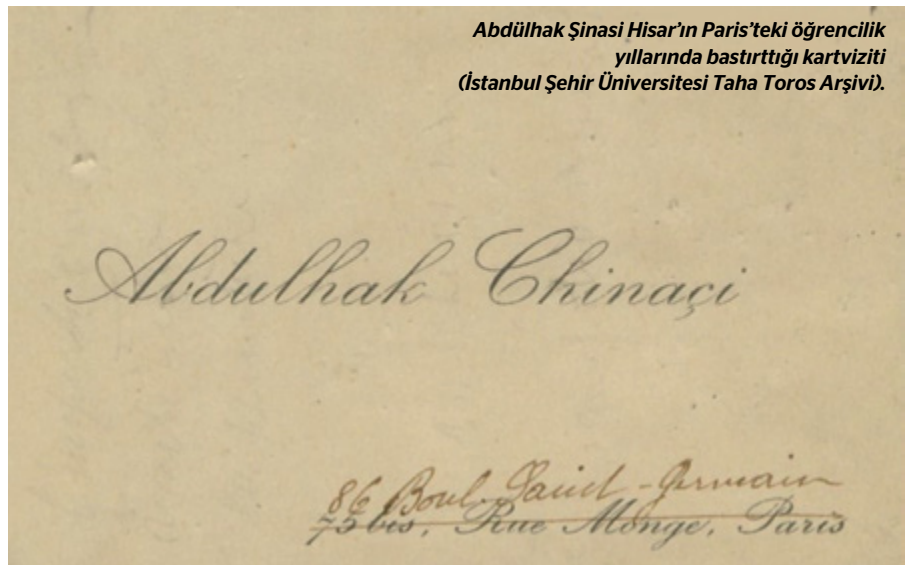 Abdülhak Şinasi Hisar’ın Paris’teki öğrencilik
yıllarında bastırttığı kartviziti
(İstanbul Şehir Üniversitesi Taha Toros Arşivi).
Abdulhak Chinaçi
86 Boul. Saint-Germain
75 bis, Rue Monge, Paris